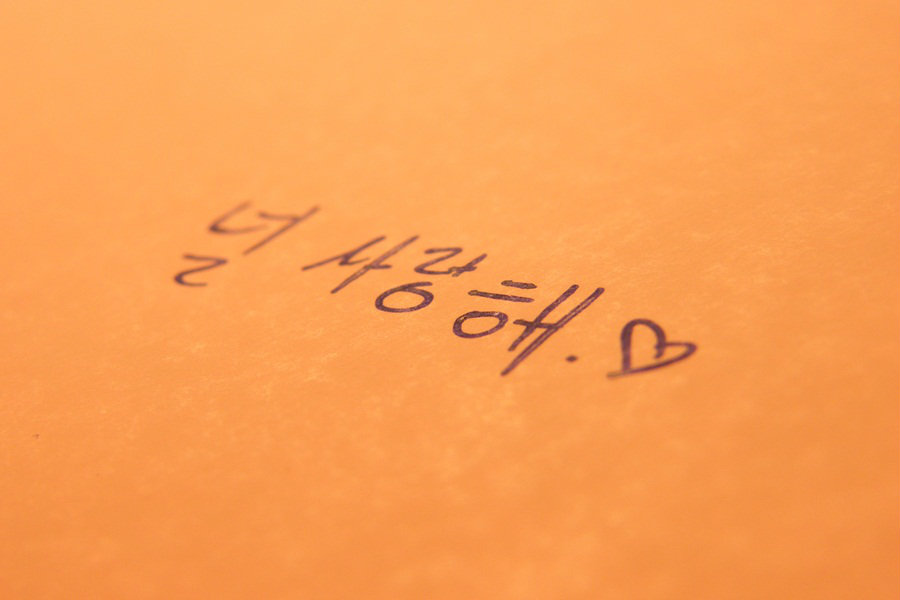 널 사랑해. ♡